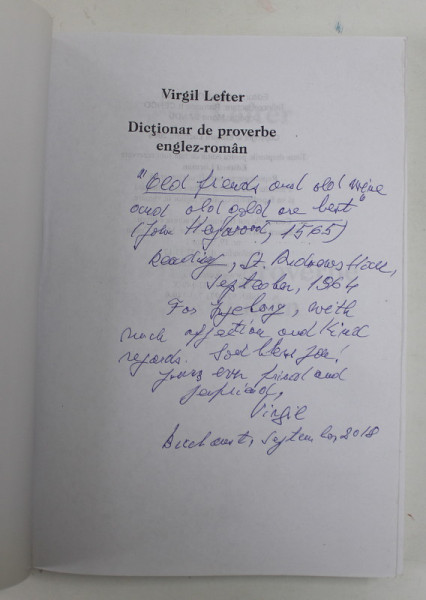 Virgil Lefter
Dicționar de proverbe
englez-român
"Old friends and old wine
and old gold are best"
(John Heywood, 1565)
Reading, St. Andrews Hall,
September, 1964
For Ingeborg, with
much affection and kind
regards. God bless you!
Yours ever friend and
Virgil
Bucharest, September, 2018